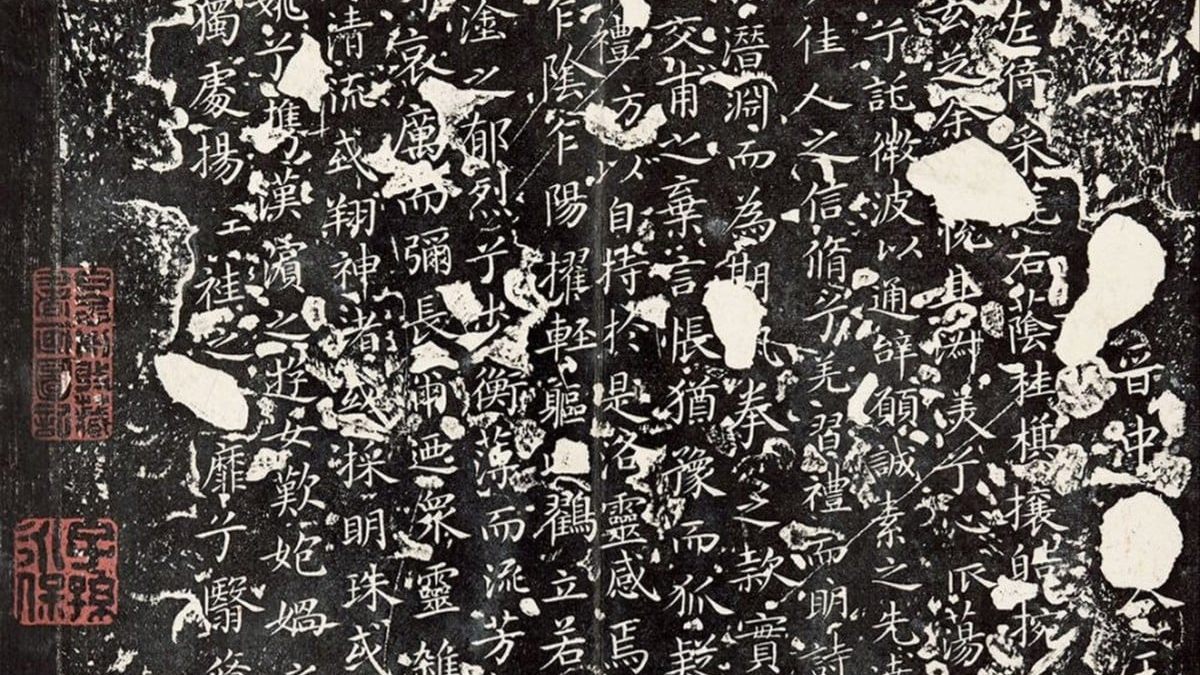 晉中
左倚采旄右蔭桂棋攘皓捥
玄之余悅其淑美兮心蕩
兮託微波以通辭願誠素之先達
佳人之信脩兮羌習禮而明詩
潛淵而為期拳之款實
交甫之棄言悵猶豫而狐疑
禮方以自持於是洛靈感焉
乍陰乍陽擢輕軀以鶴立若
塗之郁烈兮步衡薄而流芳
哀厲而彌長爾迺眾靈雜
清流或翔神渚或採明珠或
姚兮攜漢濱之遊女歎媧
獨處揚袿之靡兮翳脩
子孫永保